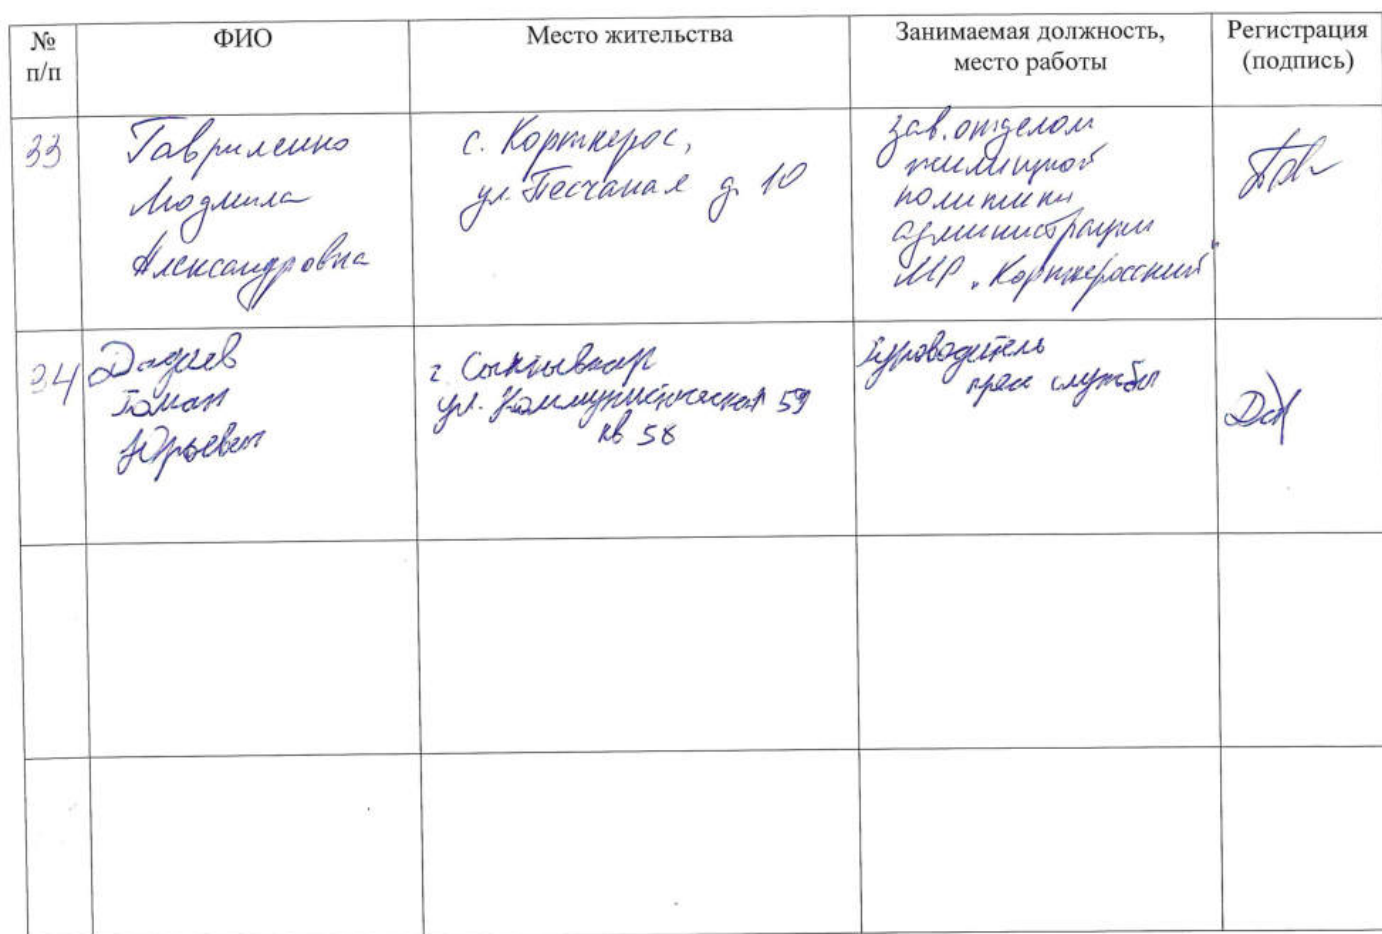 № п/п
ФИО
Место жительства
Занимаемая должность, место работы
Регистрация (подпись)
33
Гавриленко
Людмила
Александровна
с. Корткерос,
ул. Песчаная д. 10
зав. отделом
жилищной
политики
администрации
МР "Корткеросский"
34
Роман
Юрьевич
г Сыктывкар
ул. Коммунистическая 59
кв 58
Руководитель
пресс службы